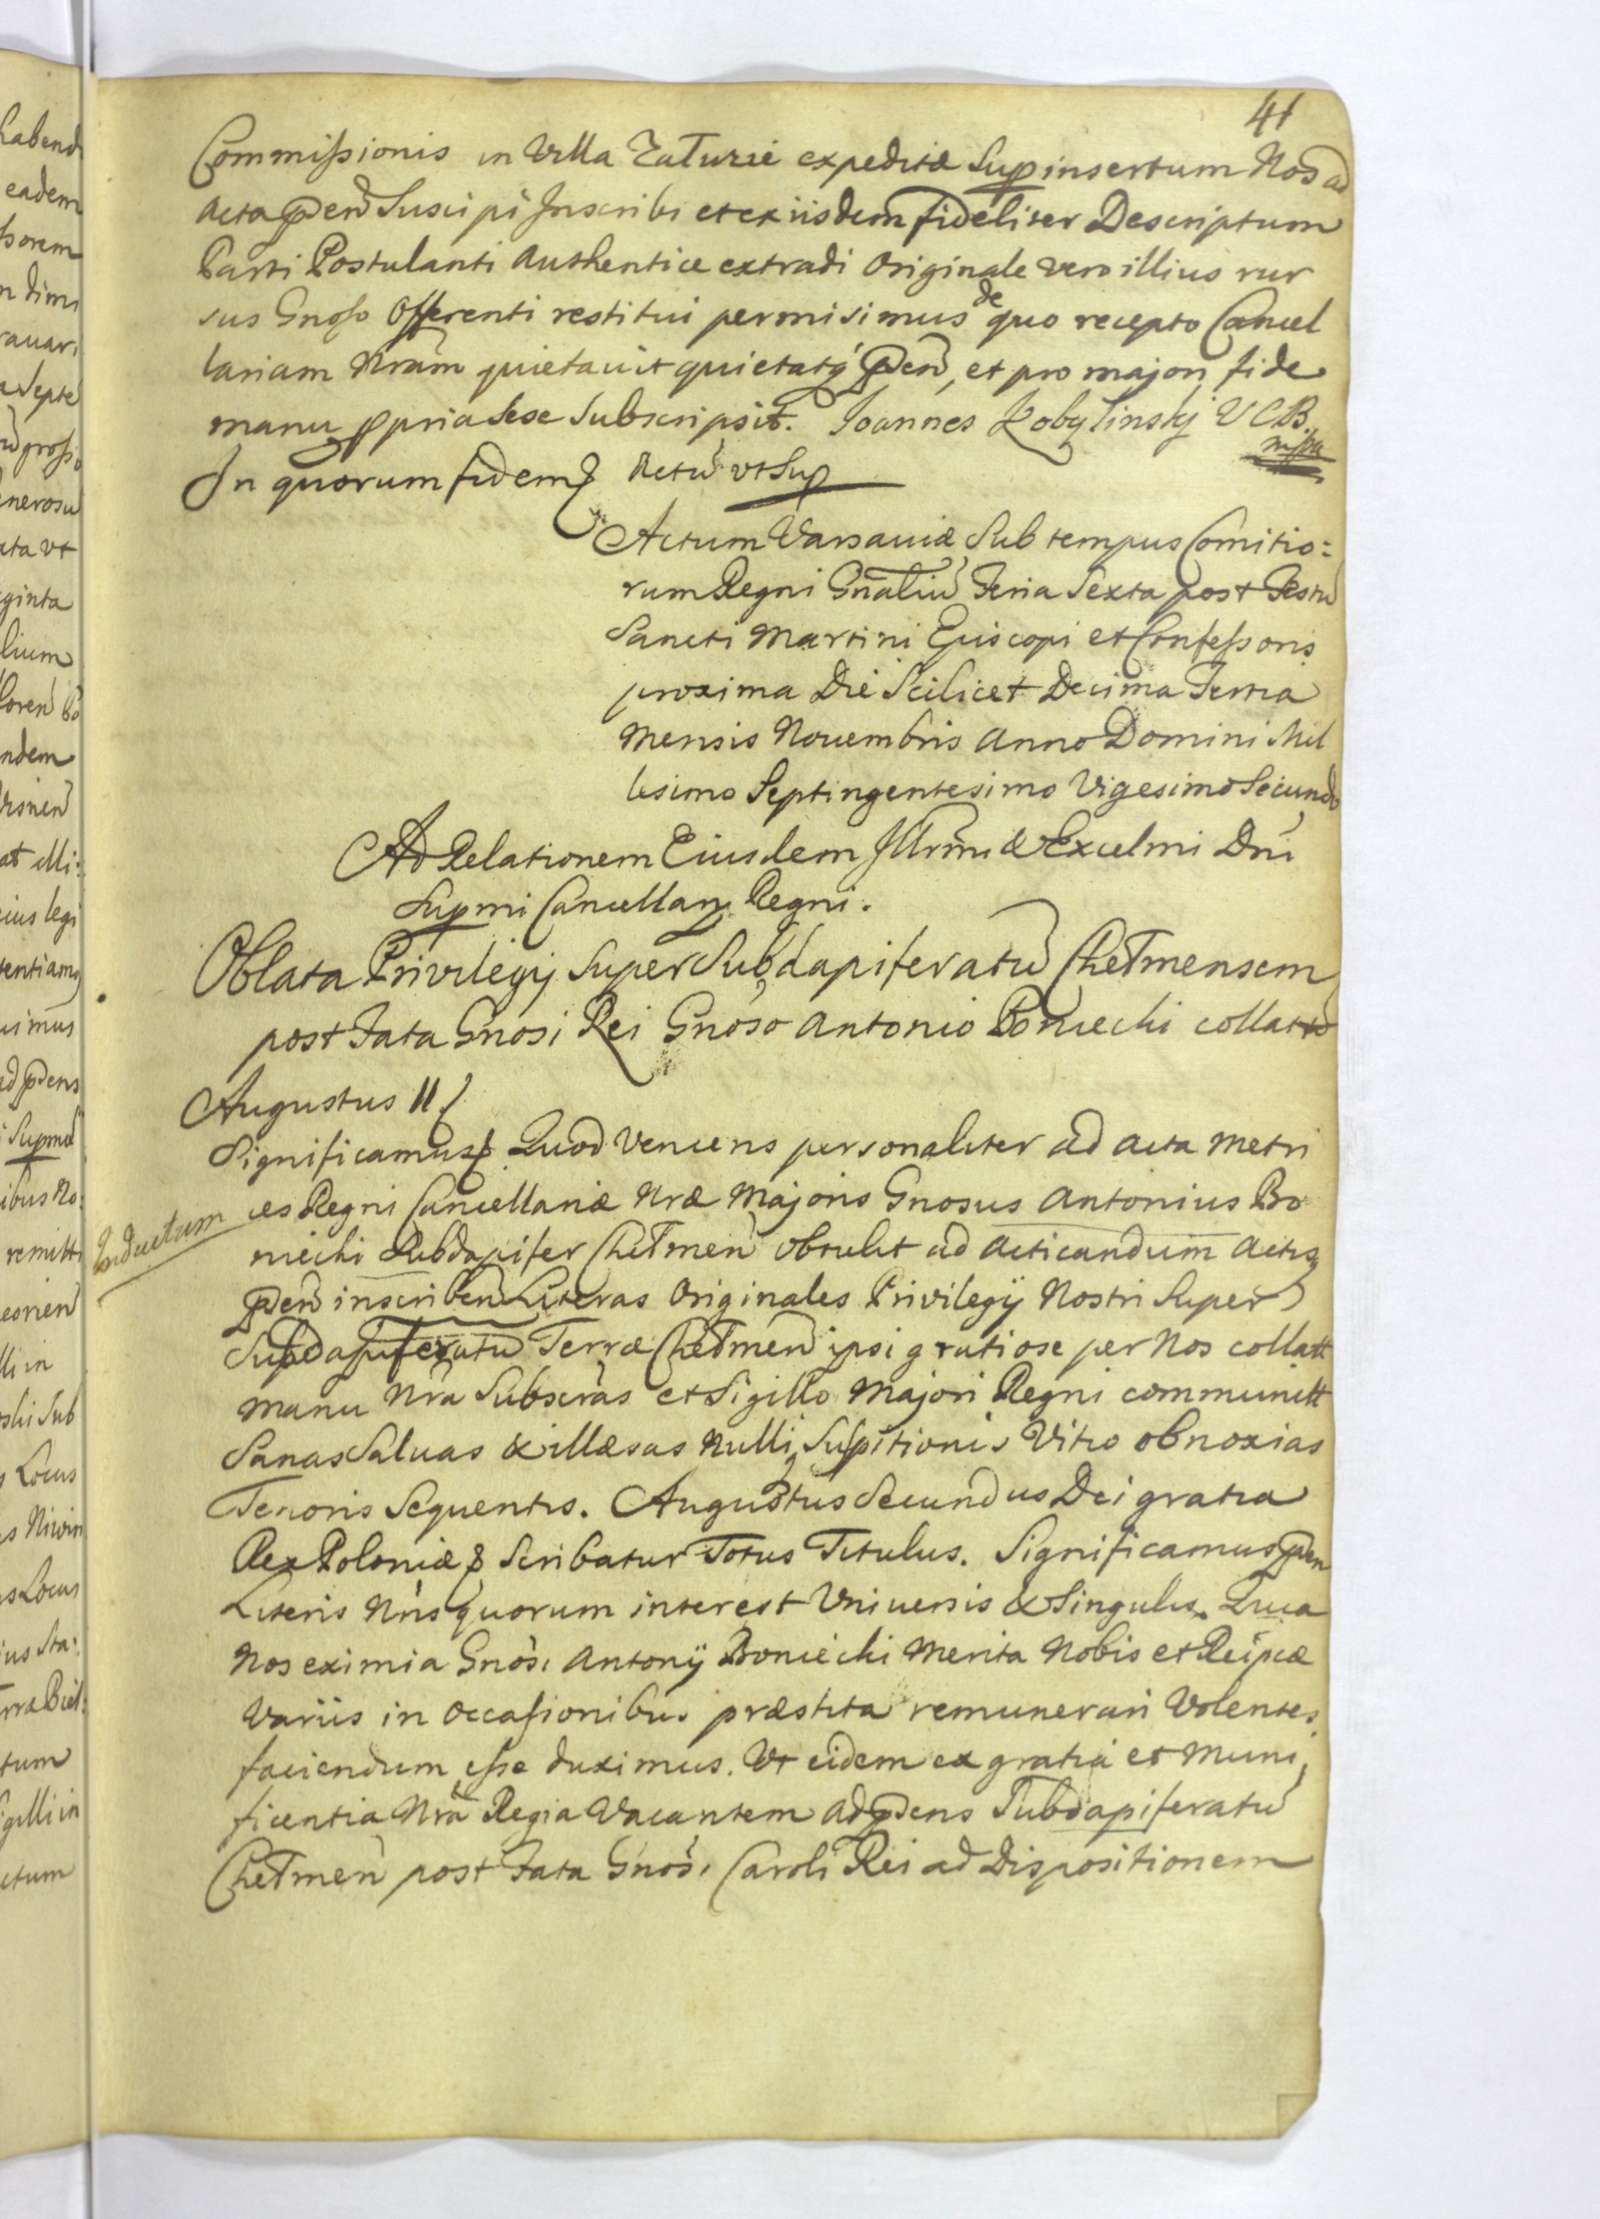 41
Commissionis in Villa Zaturze expeditæ Sup insertum Nos ad
Acta pñ Suscipi Inscribi et ex iisdem fideliter Descriptum
Parti Postulanti Authentice extradi Originale vero illius rur
sus Gnoso Offerenti restitui permisimus de quo recepto Cancel
lariam Nram quietavit quietatq pñ, et pro majori fide
manu ppria sese Subscripsit. Joannes Kobylinskj VCB.
mppa
In quorum fidem Actũ ut Sup
Actum Varsaviæ Sub tempus Comitio:
rum Regni Gñaliũ Feria Sexta post Festũ
Sancti Martini Episcopi et Confessoris
proxima Die Scilicet Decima Tertia
Mensis Novembris Anno Domini Mil
lesimo Septingentesimo Vigesimo Secundo
Ad Relationem Eiusdem Illrmi & Excelmi Dni
Supmi Cancellarij Regni.
Oblata Privilegij Super Subdapiferatũ Chełmensem
post Fata Gnosi Rei Gnoso Antonio Poniecki collatto
Augustus II
Significamus Quod Veniens personaliter ad Acta Metri
ces Regni Cancellariæ Nræ Majoris Gnosus Antonius Bo
niecki Subdapifer Chełmeñ obtulit ad Acticandum Actisq
Inductum
pñ inscribeñ Literas Originales Privilegij Nostri Super
Subdapiferatũ Terræ Chełmeñ ipsi gratiose per Nos collatt
manu Nra Subscras et Sigillo Majori Regni communitt
Sanas Salvas & illæsas Nulli Suspitionis Vitio obnoxias
Tenoris Sequentis. Augustus Secundus Dei gratia
Rex Poloniæ Scribatur Totus Titulus. Significamus pñ
Literis Nris quorum interest Universis & Singulis. Quia
Nos eximia Gnosi Antonij Boniecki Merita Nobis et Reipcæ
Variis in Occasionibus præstita remunerari Volentes
faciendum esse duximus. Ut eidem ex gratia et Muni
ficentia Nra Regia Vacantem ad pdens Subdapiferatũ
Chełmeñ post Fata Gnosi Caroli Rei ad Dispositionem